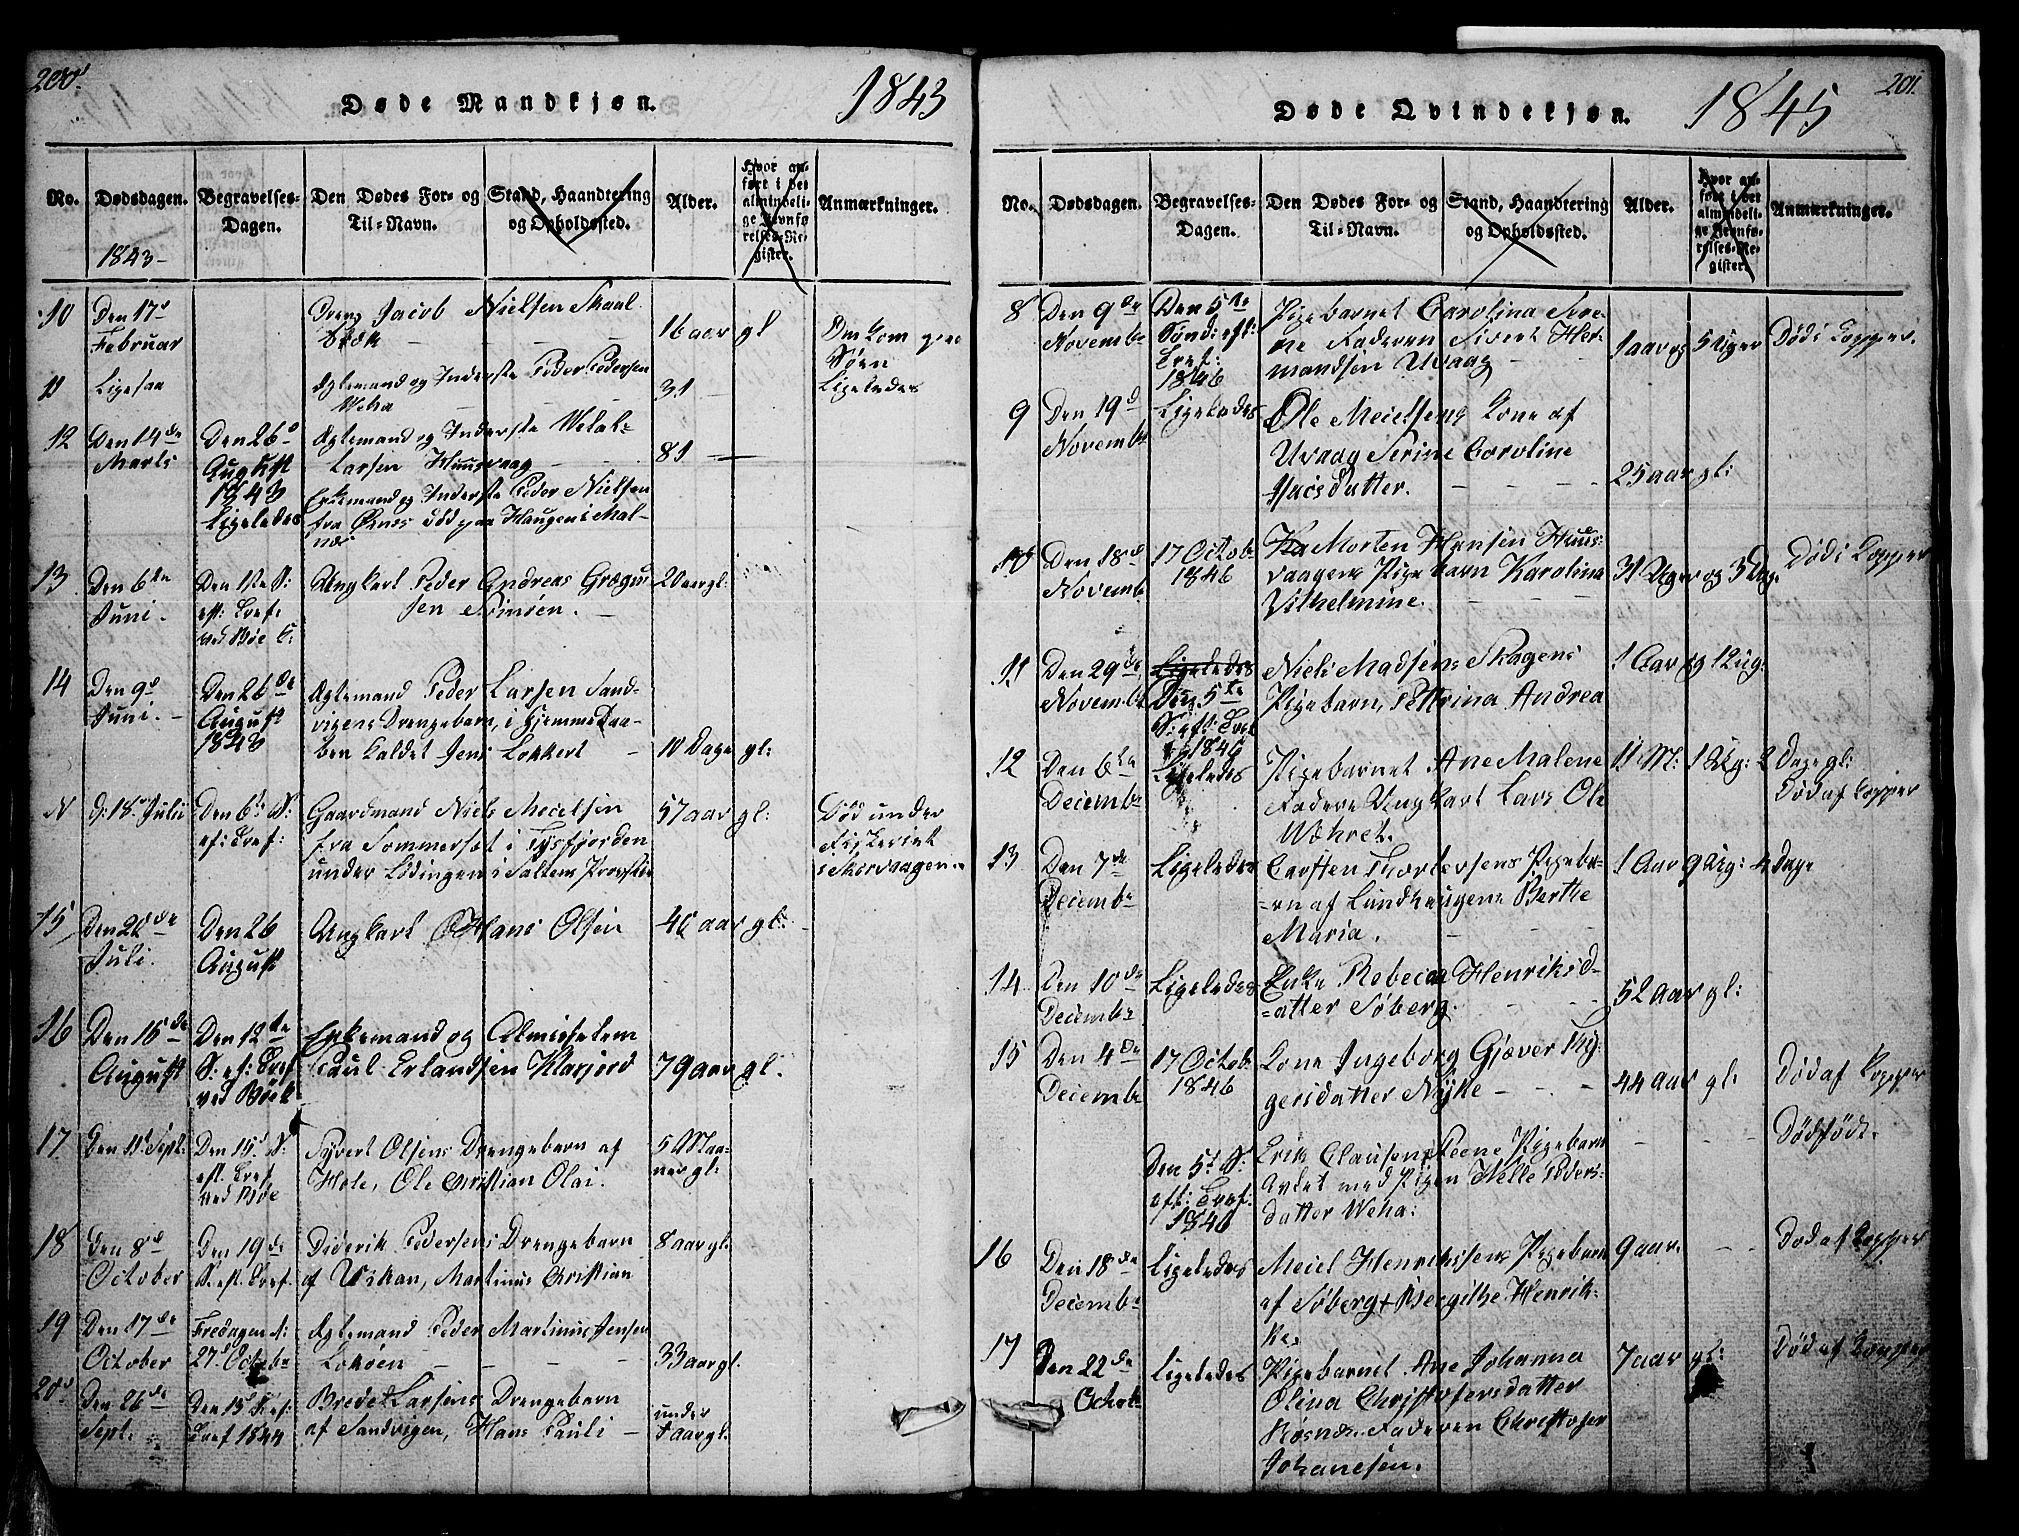 200.
Døde Mandkjøn.
1843
No.
Dødsdagen.
1843-
Begravelses-
Dagen.
Den Dødes For- og
Til-Navn.
Stand, Haandtering
og Opholdssted.
Alder.
Hvor an-
ført i det
almindeli-
ge Jevnfø-
relses-Re-
gister.
Anmærkninger.
10 Den 17d
Februar
Dreng Jacob Nielsen Skaal
16 aar gl
Omkom paa
Søen
11 Ligesaa
Ægtemand og Inderste Peder Pedersen
Weha
31
Ligeledes
12 Den 14de
Marts
Den 26d
August
1843
Ligeledes
Ægtemand og Inderste
Larsen Huusvaag
81
Enkemand og Inderste Peder Nielsen
fra død paa Haugen i Mal-
næs
13 Den 6te
Juni.
Den 1ste S:
eft: Tref:
ved Bøe K:
Ungkarl Peder Andreas Grægus-
sen
20 aar gl:
14 Den 9d
Juni. -
Den 26de
August
1843
Ægtemand Peder Larsen Sand-
vigens Drengebarn, i Hjemmedaa-
ben kaldet Jens Lokkert
10 Dage gl:
N d: 18. Julii
Den 6te S:
ef: Tref:
Gaardmand Niels Meielsen
fra Sommerset i Tysfjorden
under Lødingen i Saltens Provstie
57 aar gl:
Død under
Fiskeriet
i Skorvaagen
15
Juli.
Den 26
August
Ungkarl Hans Olsen
40 aar gl:
16 Den 15de
August
Den 12te
S: ef: Tref
ved Bøe K
Enkemand og Almisselem
Paul Erlandsen Klaxjord
79 aar gl.
17 Den 11t Sept:
Den 15d S:
eft. Tref
ved Bøe
Syvert Olsens Drengebarn af
Hole, Ole Christian Olai.
5 Maa-
ner gl:
18 Den 8d
October
Den 19de
S. eft. Tref.
Diderik Pedersens Drengebarn
af Wikan, Martinus Cristian
8 aar gl:
19 Den 17de
October
Fredagen d:
27d Octobr
Ægtemand Peder Martinus Jensen
Lokøen
33 aar gl.
20 Den 26de
Sept:
Den 15d S: ef:
Tref 1844
Brede Larsens Drengebarn
af Sandvigen, Hans Pauli
under
1 aar gl:
201.
Døde Qvindekjøn.
1845
No.
Dødsdagen.
Begravelses-
Dagen.
Den Dødes For- og
Til-Navn.
Stand, Haandtering
og Opholdssted.
Alder.
Hvor an-
ført i det
almindeli-
ge Jevnfø-
relses-Re-
gister.
Anmærkninger.
8 Den 9de
Novembr
Den 5te
Sønd: eft:
Tref:
1846
Pigebarnet Carolina Sere-
ne Faderen Sivert Her-
mandsen Uvaag
1 aar og 5 Uger
Død i Kopper.
9 Den 19d
Novembr
Ligeledes
Ole Meielsens Kone af
Uvaag Serine Caroline
Isacsdatter.
25 aar gl:
10 Den 18de
Novemb.
17 Octobr
1846
Morten Hansen Huus-
vaagens Pigebarn Karolina
Vilhelmine.
31 Uger og 3 Dage
Død i Kopper
11 Den 29de
Novembr
Ligeledes
Den 5te
S: eft: Tref
1846
Niels Madsens Skagens
Pigebarn, Pettrina Andrea
1 Aar og 1 Ug:
12 Den 6te
Decembr
Ligeledes
Pigebarnet Ane Malene
Faderen Ungkarl Lars Ole
Wæhret.
11 M: 1 Ug: 2 Dage gl:
Død af Kopper
13 Den 7de
Decembr
Ligeledes
Carsten Thorkersens Pigeba-
=rn af Lundhaugen Berthe
Maria.
1 Aar 9 Ug: 4 Dage
14 Den 10de
Decembr
Ligeledes
Enke Rebecca Henriksd-
=atter Søberg.
52 aar gl:
15 Den 4de
Decembr
17 Octob.
1846
Kone Ingeborg Gjæver Thy-
gersdatter Nykke -
44 aar gl:
Død af Kopper
Den 5t S:
eft: Tref:
1846
Erik Clausen Steene Pigebarn
avlet med Pigen Helle Peders-
datter Weha:
Dødfødt.
16 Den 18de
Decembr
Ligeledes
Meiel Henrikssens Pigebarn
af Søberg Bergithe Henrik-
ke.
9 aar.
Død af Kopper
17 Den 22de
Octobr
Ligeledes
Pigebarnet Ane Johanna
Olina Christofersdatter
Røsnæs Faderen Christofer
Johanesen.
7 aar gl:
Død af Kopper